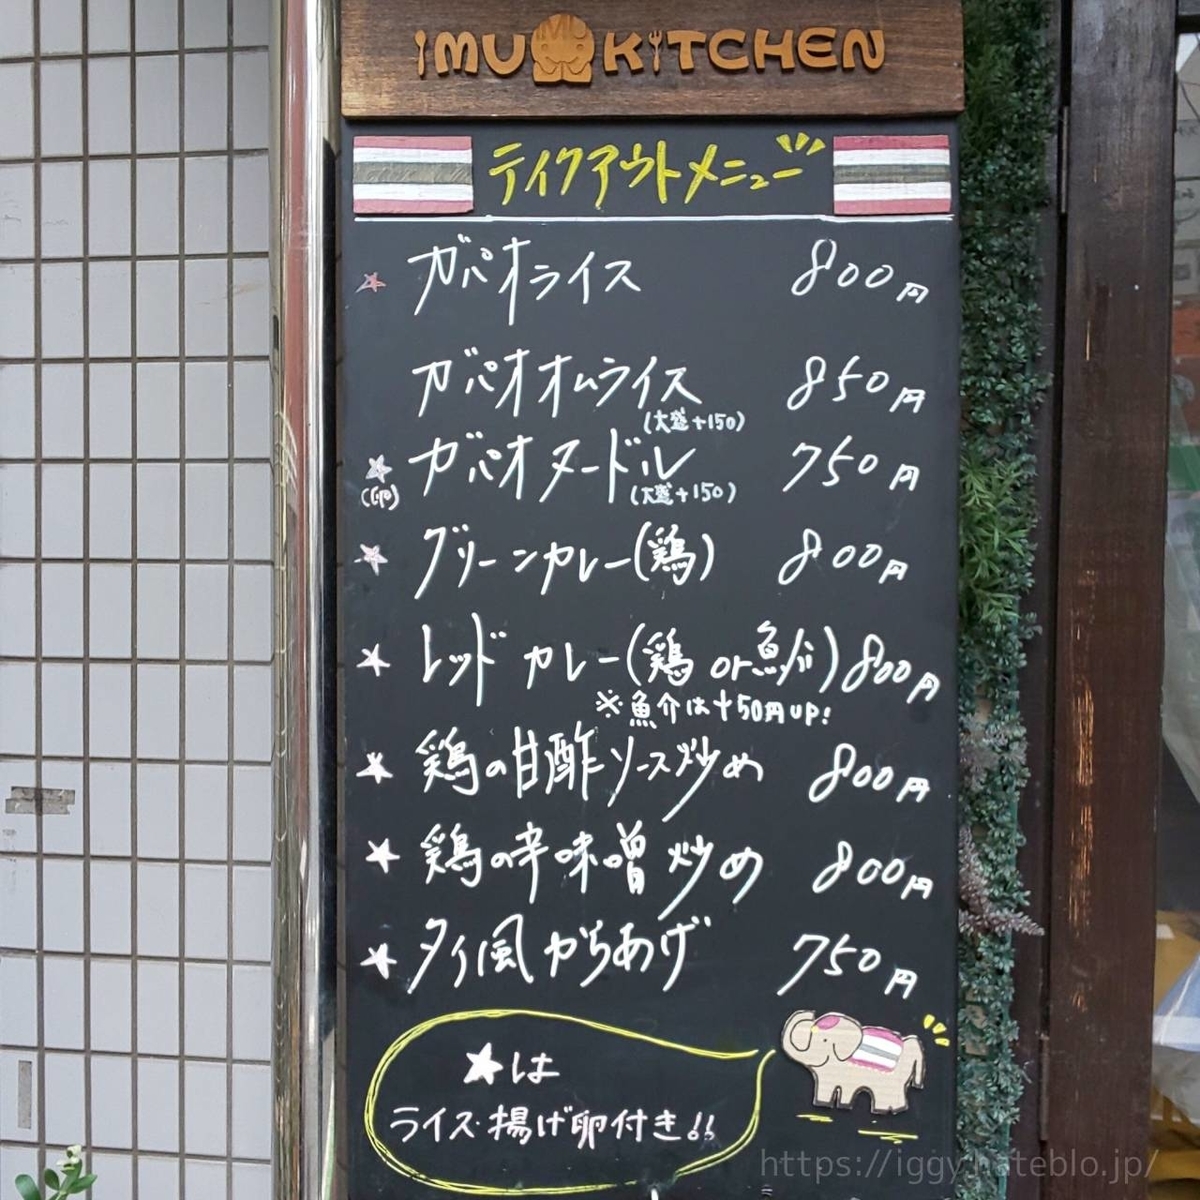 IMU KITCHEN
テイクアウトメニュー
★ ガパオライス 800円
ガパオオムライス 850円
(大盛+150)
★ ガパオヌードル 750円
(卵) (大盛+150)
★ グリーンカレー(鶏) 800円
★ レッドカレー(鶏 or 魚介) 800円
※魚介は+50円UP!
★ 鶏の甘酢ソース炒め 800円
★ 鶏の辛味噌炒め 800円
★ タイ風からあげ 750円
★は
ライス・揚げ卵付き!!
https://iggy.hateblo.jp/